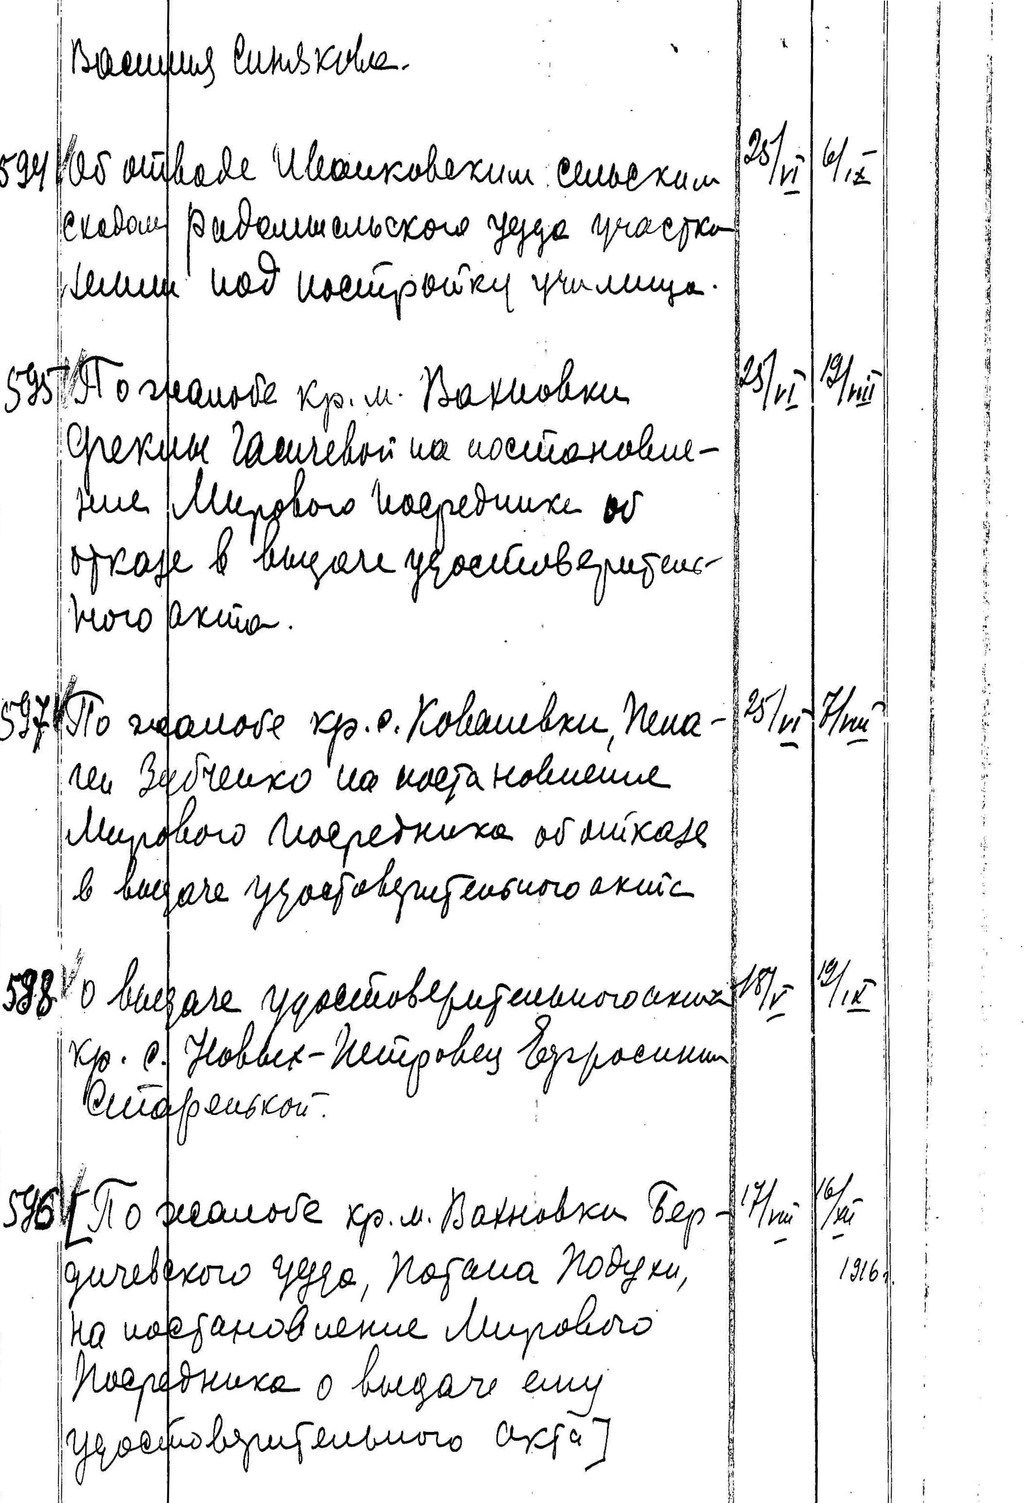 Василия Синякова.
594 Об отводе Иванковским сельским 25/VI 6/IX
сходом Радомысльского уезда участка
земли под постройку училища.
595 По жалобе кр. м. Вахновки 25/VI 19/VIII
Феклы Гасичевой на постановле-
ние Мирового Посредника об
отказе в выдаче удостоверитель-
ного акта.
597 По жалобе кр. с. Ковалевки, Пела- 25/VI 7/VIII
геи Зубченко на постановление
Мирового Посредника об отказе
в выдаче удостоверительного акта
598 О выдаче удостоверительного акта 18/V 19/IX
кр. с. Новых-Петровец Евфросинии
Старенькой.
596 [По жалобе кр. м. Вахновки Бер- 17/VIII 16/XII
дичевского уезда, Потапа Подуки, 1916г.
на постановление Мирового
Посредника о выдаче ему
удостоверительного акта]